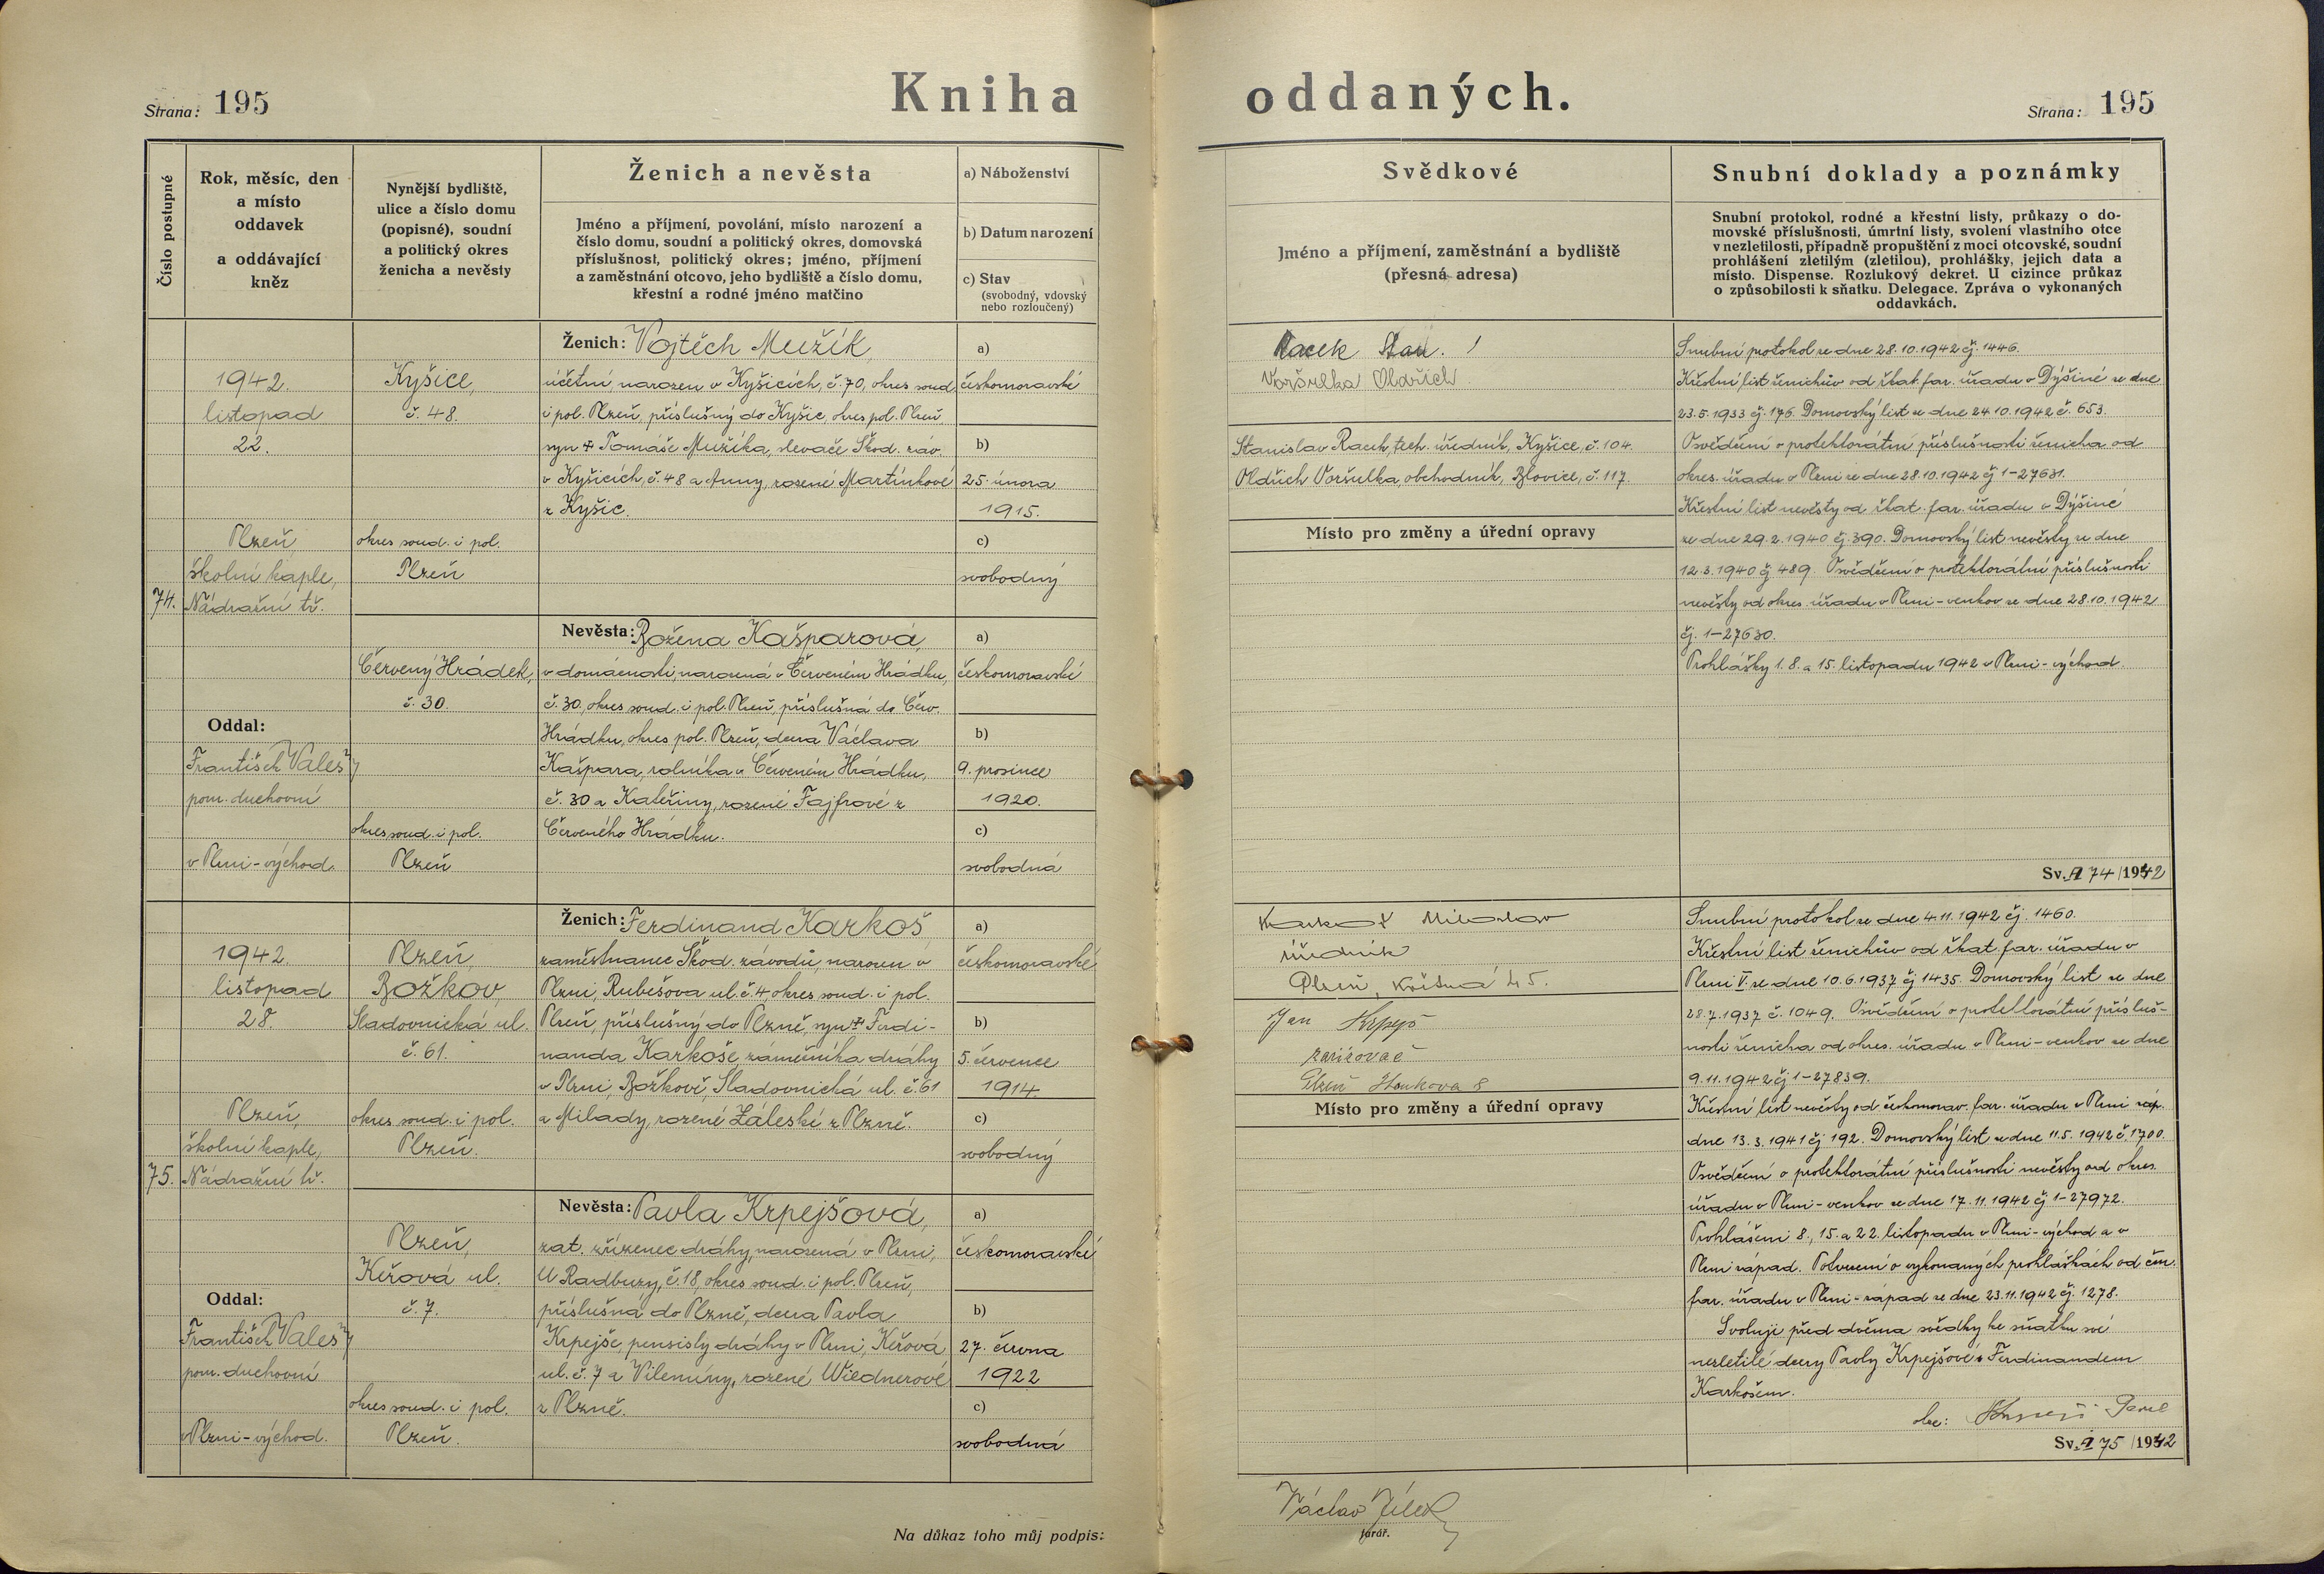 Strana: 195
Kniha oddaných.
Strana: 195
Číslo postupné
Rok, měsíc, den
a místo
oddavek
a oddávající
kněz
Nynější bydliště,
ulice a číslo domu
(popisné), soudní
a politický okres
ženicha a nevěsty
Ženich a nevěsta
Jméno a příjmení, povolání, místo narození a
číslo domu, soudní a politický okres, domovská
příslušnost, politický okres; jméno, příjmení
a zaměstnání otcovo, jeho bydliště a číslo domu,
křestní a rodné jméno matčino
a) Náboženství
b) Datum narození
c) Stav
(svobodný, vdovský
nebo rozloučený)
Svědkové
Jméno a příjmení, zaměstnání a bydliště
(přesná adresa)
Snubní doklady a poznámky
Snubní protokol, rodné a křestní listy, průkazy o do-
movské příslušnosti, úmrtní listy, svolení vlastního otce
v nezletilosti, případně propuštění z moci otcovské, soudní
prohlášení zletilým (zletilou), prohlášky, jejich data a
místo. Dispense. Rozlukový dekret. U cizince průkaz
o způsobilosti k sňatku. Delegace. Zpráva o vykonaných
oddavkách.
74.
1942.
listopad
22.
Plzeň,
školní kaple,
Nádražní tř.
Oddal:
František Valeš
pom. duchovní
v Plzni-východ.
Kyšice,
č. 48.
okres soud. i pol.
Plzeň
Červený Hrádek,
č. 30.
okres soud. i pol.
Plzeň
Ženich: Vojtěch Mužík,
účetní, narozen v Kyšicích, č. 70, okres soud.
i pol. Plzeň, příslušný do Kyšic, okres pol. Plzeň,
syn + Tomáše Mužíka, slevače Škod. záv.
v Kyšicích, č. 48 a Anny, rozené Martínkové
z Kyšic.
a)
českomoravské
b)
25. února
1915.
c)
svobodný
Nevěsta: Božena Kašparová,
v domácnosti, narozená v Červeném Hrádku,
č. 30, okres soud. i pol. Plzeň, příslušná do Červ.
Hrádku, okres pol. Plzeň, dcera Václava
Kašpara, rolníka v Červeném Hrádku,
č. 30 a Kateřiny, rozené Fajfrové z
Červeného Hrádku.
a)
českomoravské
b)
9. prosince
1920.
c)
svobodná
Racek Stan.
Voršulka Oldřich
Stanislav Racek, tech. úředník, Kyšice, č. 104.
Oldřich Voršulka, obchodník, Blovice, č. 117.
Místo pro změny a úřední opravy
Snubní protokol ze dne 28.10.1942 čj. 1446.
Křestní list ženichův od řkat. far. úřadu v Dýšině ze dne
23.5.1933 čj. 176. Domovský list ze dne 24.10.1942 č. 653.
Osvědčení o protektorátní příslušnosti ženicha od
okres. úřadu v Plzni ze dne 28.10.1942 čj 1-27631.
Křestní list nevěsty od řkat. far. úřadu v Dýšině
ze dne 29.2.1940 čj. 390. Domovský list nevěsty ze dne
12.3.1940 čj 489. Osvědčení o protektorátní příslušnosti
nevěsty od okres. úřadu v Plzni-venkov ze dne 28.10.1942
čj. 1-27630.
Prohlášky 1. 8. a 15. listopadu 1942 v Plzni-východ.
Sv. A 74/1942
75.
1942.
listopad
28.
Plzeň,
školní kaple,
Nádražní tř.
Oddal:
František Valeš
pom. duchovní
v Plzni-východ.
Plzeň,
Božkov,
Sladovnická ul.
č. 61.
okres soud. i pol.
Plzeň.
Plzeň,
Keřová ul.
č. 7.
okres soud. i pol.
Plzeň.
Ženich: Ferdinand Karkoš
zaměstnanec Škod. závodů, narozen v
Plzni, Rubešova ul. č. 4, okres soud. i pol.
Plzeň, příslušný do Plzně, syn + Ferdi-
nanda Karkoše zámečníka dráhy
v Plzni, Božkově, Sladovnická ul. č. 61
a Milady, rozené Záleské z Plzně.
a)
českomoravské
b)
5. července
1914.
c)
svobodný
Nevěsta: Pavla Krpejšová,
zat. zřízenec dráhy, narozená v Plzni,
U Radbuzy, č. 18, okres soud. i pol. Plzeň,
příslušná do Plzně, dcera Pavla
Krpejše, pensisty dráhy v Plzni, Keřová
ul. č. 7 a Vilemíny, rozené Wiednerové
z Plzně.
a)
českomoravské
b)
27. června
1922
c)
svobodná
Karkoš Miloslav
úředník
Plzeň,
Jan Krpejš
Plzeň
Místo pro změny a úřední opravy
Snubní protokol ze dne 4.11.1942 čj. 1460.
Křestní list ženichův od řkat. far. úřadu v
Plzni V. ze dne 10.6.1937 čj 1435. Domovský list ze dne
28.7.1937 č. 1049. Osvědčení o protektorátní přísluš-
nosti ženicha od okres. úřadu v Plzni-venkov ze dne
9.11.1942 čj 1-27839.
Křestní list nevěsty od českomorav. far. úřadu v Plzni záp.
dne 13.3.1941 čj 192. Domovský list ze dne 11.5.1942 č. 1700.
Osvědčení o protektorátní příslušnosti nevěsty od okres.
úřadu v Plzni-venkov ze dne 17.11.1942 čj 1-27972.
Prohlášeni 8., 15. a 22. listopadu v Plzni-východ a v
Plzni západ. Potvrzení o vykonaných prohláškách od čm.
far. úřadu v Plzni-západ ze dne 23.11.1942 čj. 1278.
Svoluji před dvěma svědky ke sňatku své
nezletilé dcery Pavly Krpejšové s Ferdinandem
Karkošem.
otec: Krpejš Pavel
Sv. A 75/1942
Na důkaz toho můj podpis:
Václav Jílek
farář.